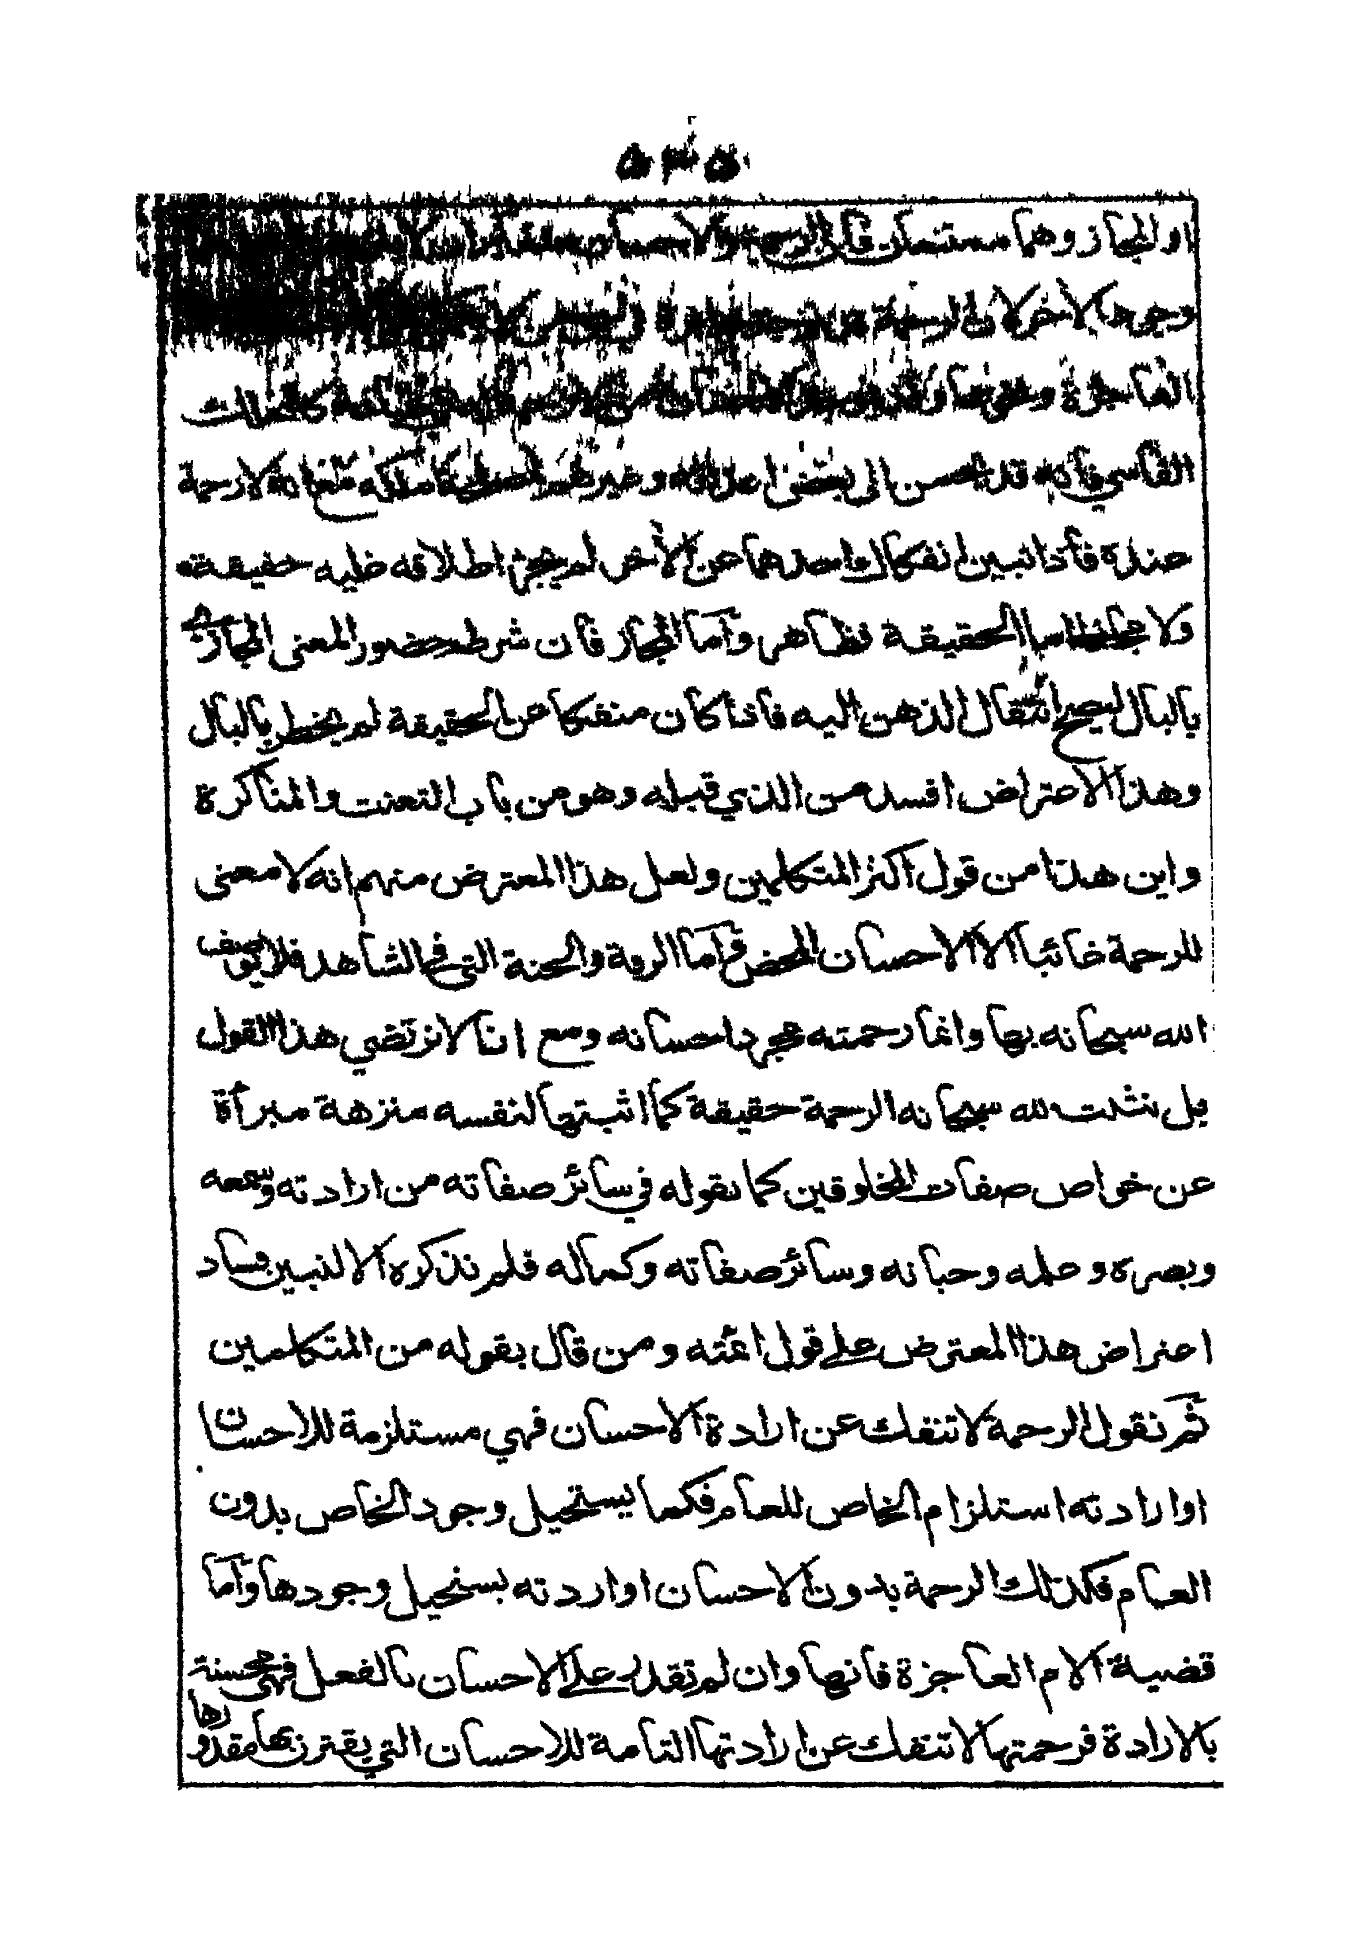 او المجاز وهما مستنعان فان الرحمة والاحسان
وجود الآخر لان الرحمة قد توجد
العاجزة ونحوها وقد
القاسي فانه قد يحسن الى بعض اعدائه وغيرهم لمصلحة ملكه مع انه لا رحمة
عنده فأذا تبين انفكاك احدهما عن الآخر لم يجز اطلاقه عليه حقيقة
ولا مجازا اما الحقيقة فظاهر وأما المجاز فأن شرطه حضور المعنى المجازي
بالبال ليصح انتقال الذهن اليه فاذا كان منفكا عن الحقيقة لم يخطر بالبال
وهذا الاعتراض افسد من الذي قبله وهو من باب التعنت والمناكرة
واين هذا من قول اكثر المتكلمين ولعل هذا المعترض منهم انه لا معنى
للرحمة غائبا الا الاحسان المحض وأما الرقة والحنة التي في الشاهد فلا يوصف
الله سبحانه بها وانما رحمته مجرد احسانه ومع اننا لا نرتضي هذا القول
بل نثبت لله سبحانه الرحمة حقيقة كما اثبتها لنفسه منزهة مبرأة
عن خواص صفات المخلوقين كما نقوله في سائر صفاته من ارادته وسمعه
وبصره وعلمه وحياته وسائر صفاته وكماله فلم نذكره الا لنبين فساد
اعتراض هذا المعترض على قول ائمته ومن قال بقوله من المتكلمين
ثم نقول الرحمة لا تنفك عن ارادة الاحسان فهي مستلزمة للاحسان
او ارادته استلزام الخاص للعام فكما يستحيل وجود الخاص بدون
العام فكذلك الرحمة بدون الاحسان او اردته يستحيل وجودها وأما
قضية الام العاجزة فانها وان لم تقدر على الاحسان بالفعل فهي محسنة
بالارادة فرحمتها لا تنفك عن ارادتها التامة للاحسان التي يقترن بها مقدورها